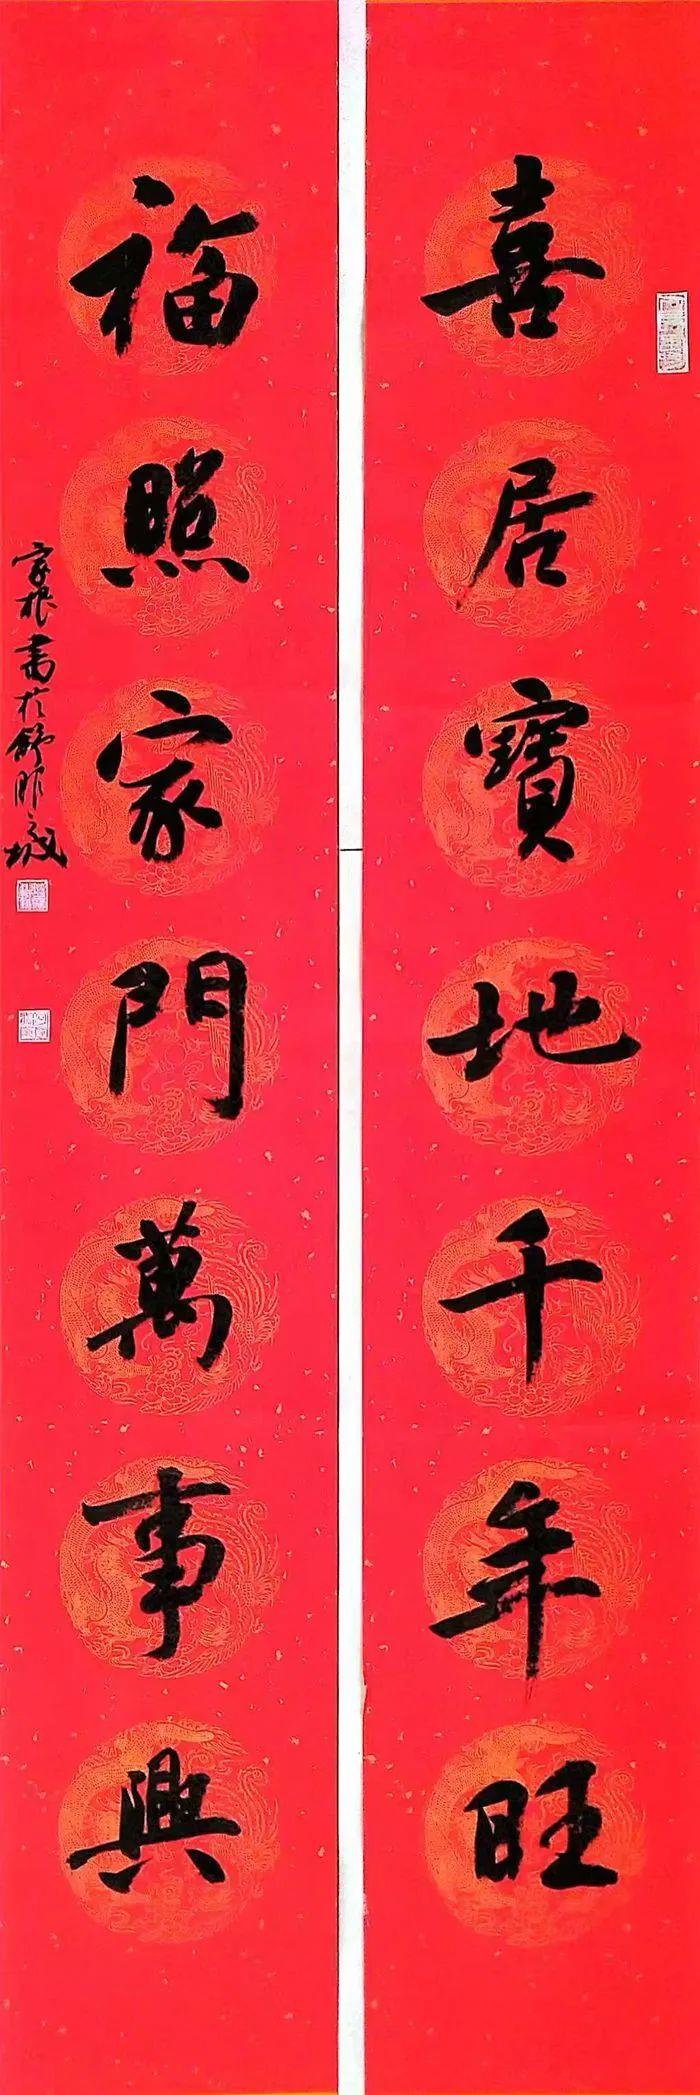 喜居寶地千年旺
福照家門萬事興
家根書於舒